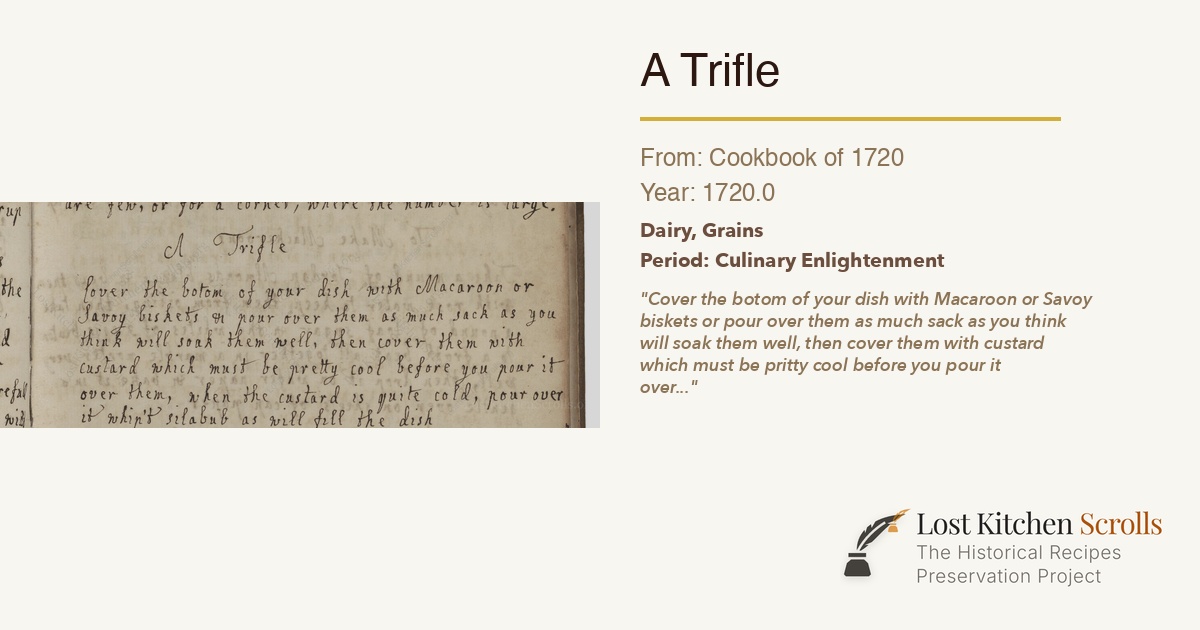 are few, or for a corner, where the number is large.
A Trifle
Cover the botom of your dish with Macaroon or
Savoy biskets & pour over them as much sack as you
think will soak them well, then cover them with
custard which must be pretty cool before you pour it
over them, when the custard is quite cold, pour over
it whip't silabub as will fill the dish
rup
the
d
refull
will
A Trifle
From: Cookbook of 1720
Year: 1720.0
Dairy, Grains
Period: Culinary Enlightenment
"Cover the botom of your dish with Macaroon or Savoy
biskets or pour over them as much sack as you think
will soak them well, then cover them with custard
which must be pritty cool before you pour it
over..."
Lost Kitchen Scrolls
The Historical Recipes
Preservation Project